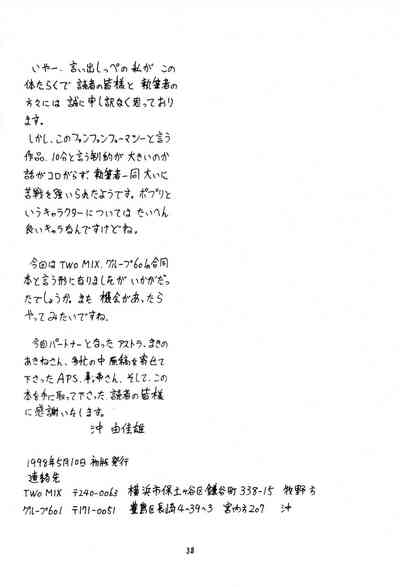 いやー、言い出しっぺの私が この
体たらくで 読者の皆様と 執筆者の
方々には 誠に申し訳なく思っており
ます。
しかし、このファンファンファーマシーと言う
作品、10分と言う制約が 大きいのか
話がコロがらず、執筆者一同 大いに
苦戦を強いられたようです。ポプリと
いうキャラクターについては たいへん
良いキャラなんですけどね。
今回は TWO MIX、グループ601の合同
本と言う形になりましたが いかがだっ
たでしょうか。また 機会があったら
やって みたいですね。
今回パートナーとなった アストラ、まきの
あきねさん、多忙の中 原稿を寄せて
下さった APS、さん、そして、この
本を手に取って下さった、読者の皆様
に 感謝いたします。
沖 由佳雄
1998年5月10日 初版 発行
連絡先
TWO MIX 〒240-0063 横浜市保土ヶ谷区鎌谷町338-15 牧野方
グループ601 〒171-0051 豊島区長崎4-39-3 宮内方207 沖
38